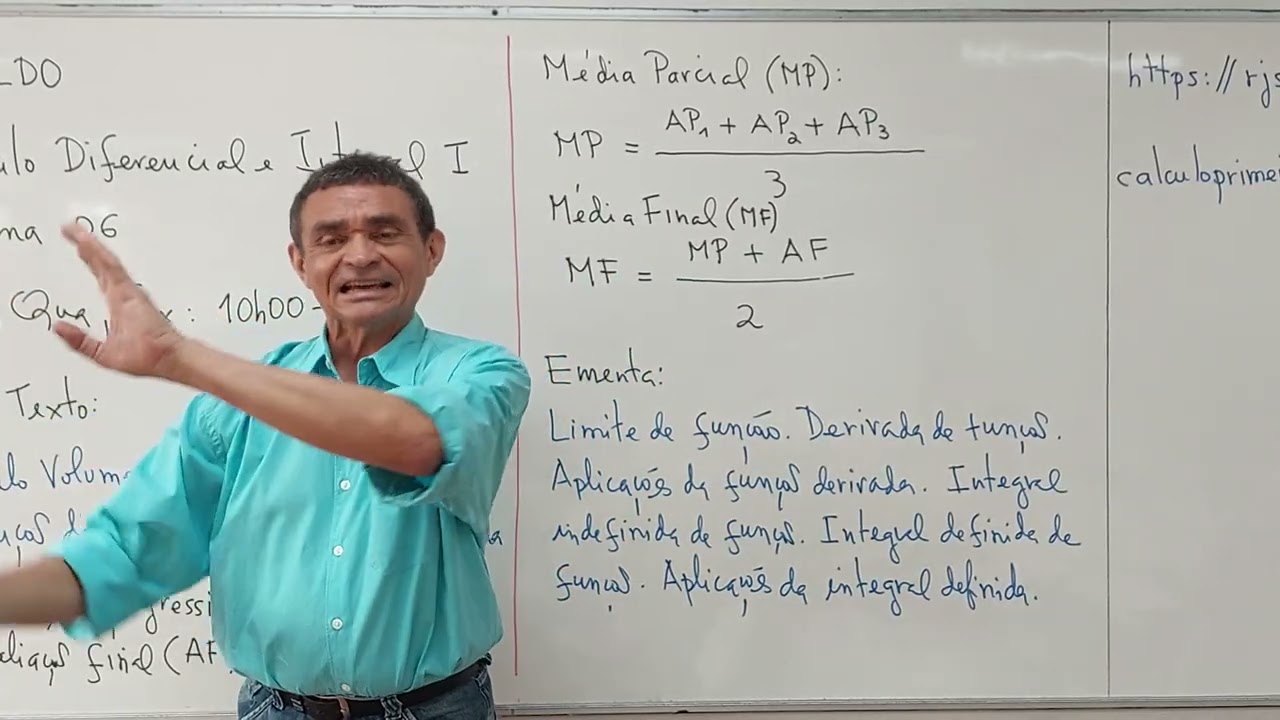 LDO
ulo Diferencial e Integral I
ma 06
Qua, Sex: 10h00-
Texto:
lo Volum
nções d
gressi
aliação final (AF
Média Parcial (MP):
MP = AP1 + AP2 + AP3
3
Média Final (MF)
MF = MP + AF
2
Ementa:
Limite de função. Derivada de função.
Aplicações da função derivada. Integral
indefinida de função. Integral definida de
função. Aplicações da integral definida.
https://rjs
calculoprimei